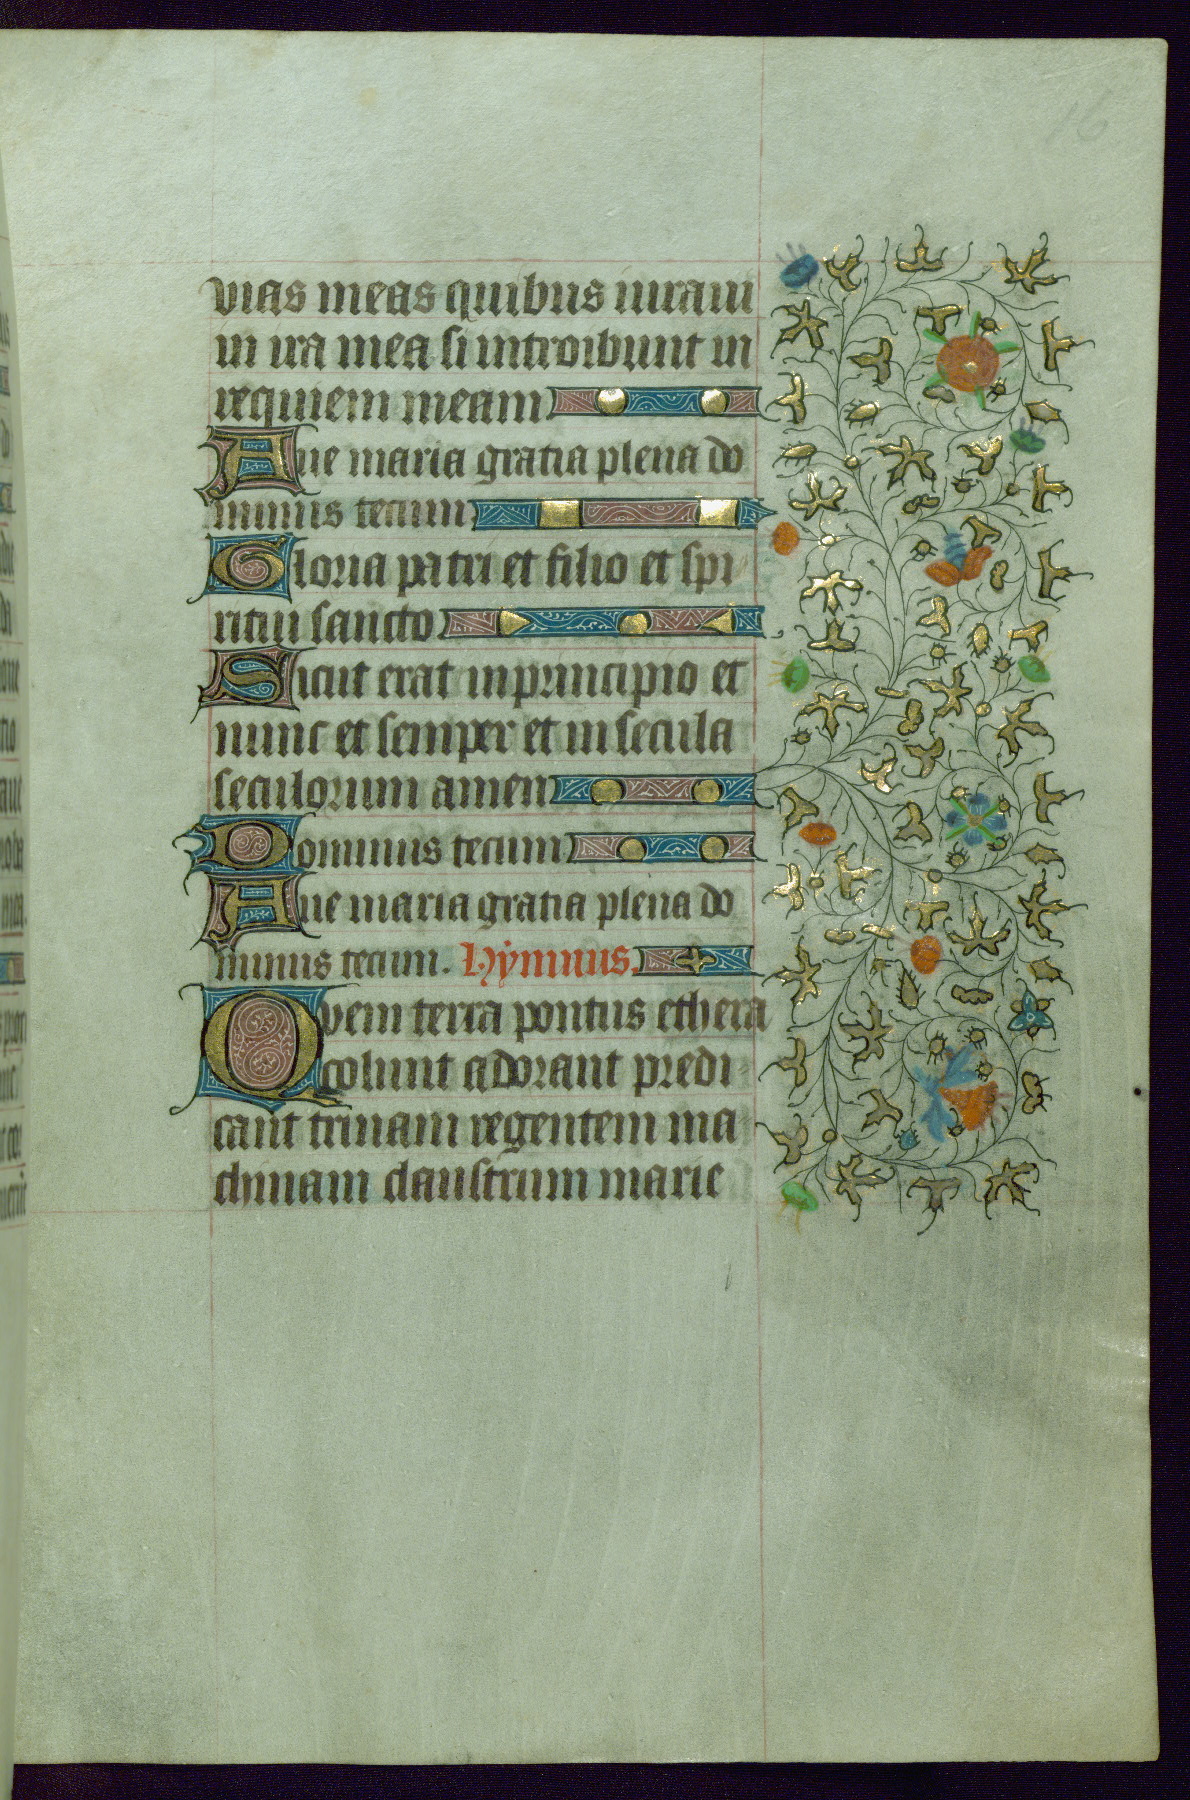 16
vias meas quibus iuraui
in ira mea si introibunt in
requiem meam
Aue maria gratia plena do
minus tecum
Gloria patri et filio et spi
ritui sancto
Sicut erat in principio et
nunc et semper et in secula
seculorum amen
Dominus tecum
Aue maria gratia plena do
minus tecum. Hymnus.
Quem terra pontus ethera
colunt adorant predi
cant trinam regentem ma
chinam claustrum marie